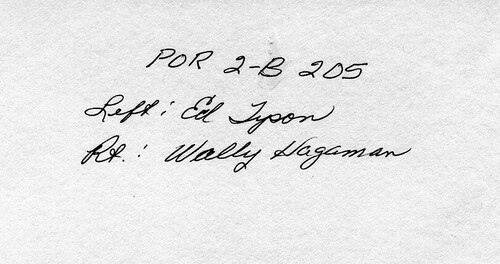 POR 2-B 205
Left: Ed Tyson
Rt.: Wally Hagaman